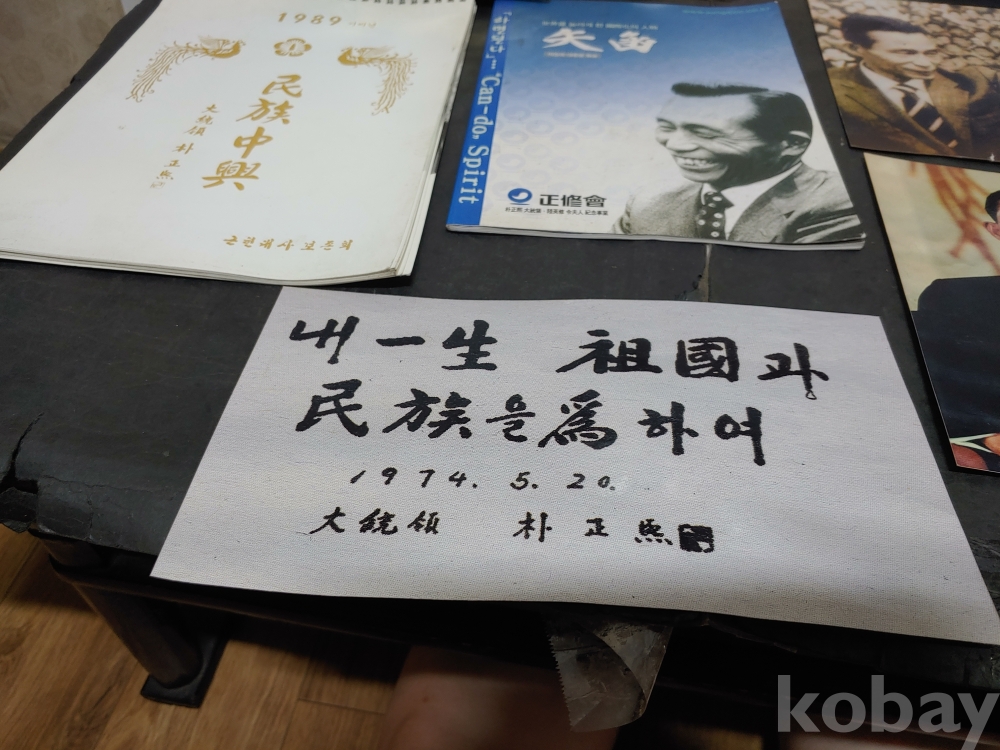 1989
民族中興
大統領 朴正熙
근현대사 보존회
"Can-do" Spirit
正修會
내 一生 祖國과
民族을 爲하여
1974. 5. 20.
大統領 朴正熙
kobay